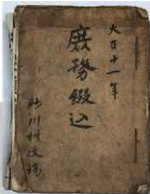 大正十一年
庶務綴込
川村役場